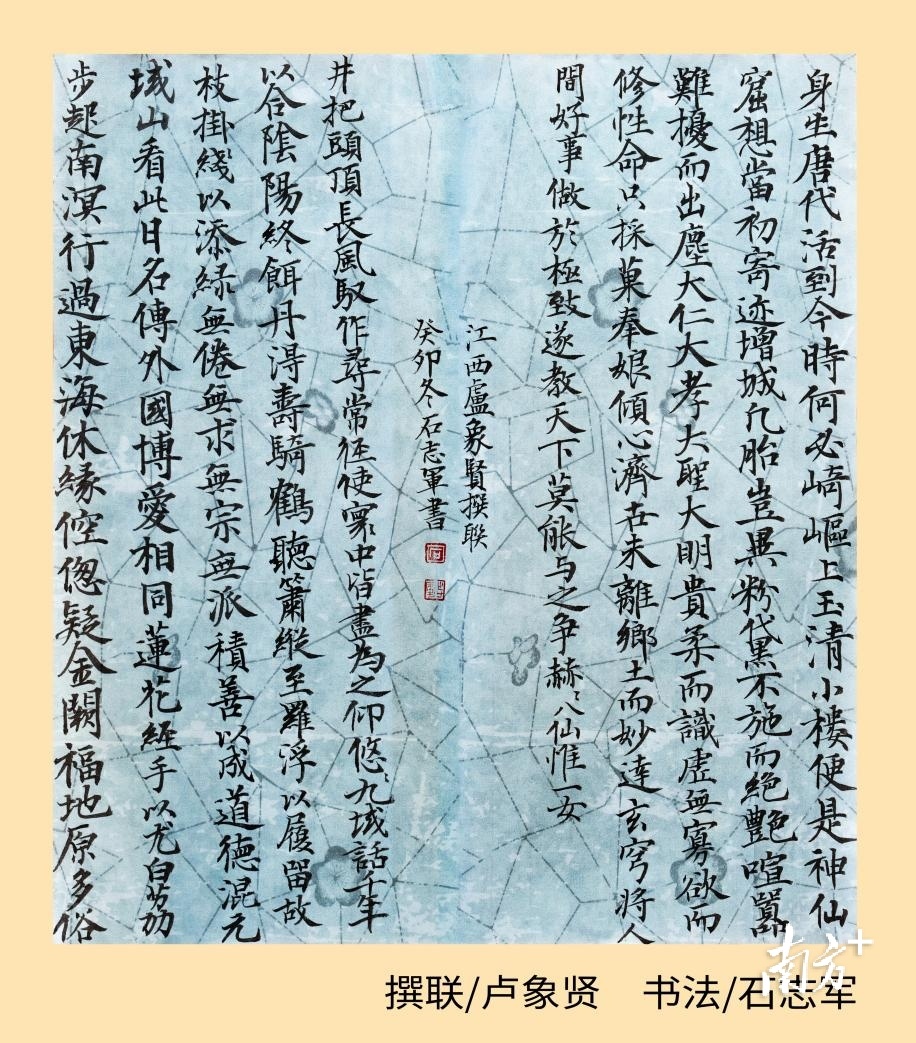 身生唐代活到今時何必崎嶇上玉清小樓便是神仙
窟想當初寄迹增城凡胎豈異粉黛不施而絕艷喧囂
難擾而出塵大仁大孝大聖大明貴柔而識虛無寡欲而
修性命只採菓奉娘傾心濟世未離鄉土而妙達玄穹將人
間好事做於極致遂教天下莫能与之争赫〻八仙惟一女
江西盧象賢撰聯
步起南溟行過東海休緣倥偬疑金闕福地原多俗
域山看此日名傳外國博愛相同蓮花經手以尤白荔
枝掛綫以添緑無倦無求無宗無派積善以成道德混元
以合陰陽終餌丹得壽騎鶴聽簫縱至羅浮以履留故
井把頭頂長風馭作尋常徑使寰中皆盡為之仰悠〻九域話千年
癸卯冬石志軍書
南方+
撰联/卢象贤 书法/石志军